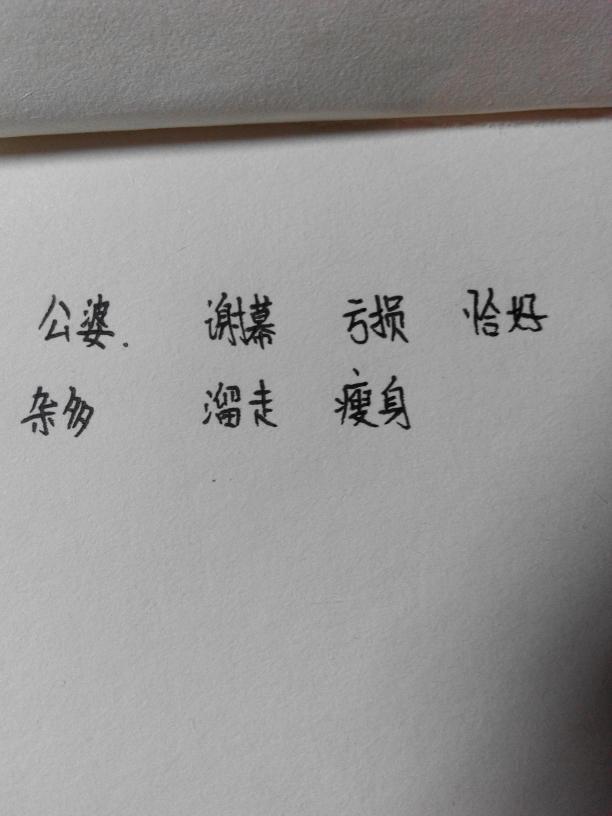 公婆. 谢幕 亏损 恰好
杂多 溜走 瘦身